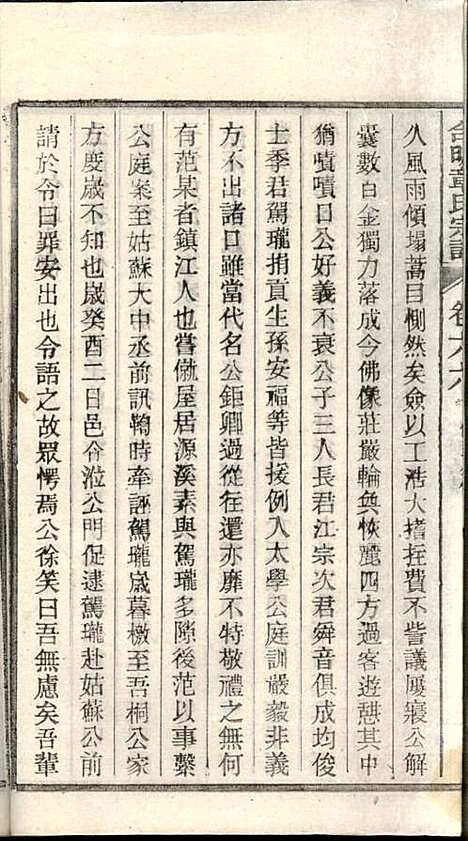 久風雨傾塌蒿目惻然矣僉以工浩大搘拄費不訾議屢寢公解
囊數白金獨力落成今佛像莊嚴輪奐恢麗四方過客遊憇其中
猶嘖嘖曰公好義不衰公子三人長君江宗次君舜音俱成均俊
士季君駕瓏捐貢生孫安福等皆接例入太學公庭訓嚴毅非義
方不出諸口雖當代名公鉅卿過從往還亦靡不特敬禮之無何
有范某者鎮江人也嘗僦屋居源溪素與駕瓏多隙後范以事繫
公庭案至姑蘇大中丞前訊鞫時牽誣駕瓏嵗暮檄至吾桐公家
方度嵗不知也嵗癸酉二日邑令涖公門促逮駕瓏赴姑蘇公前
請於令曰罪安出也令語之故眾愕焉公徐笑曰吾無慮矣吾輩
章氏宗譜
卷六